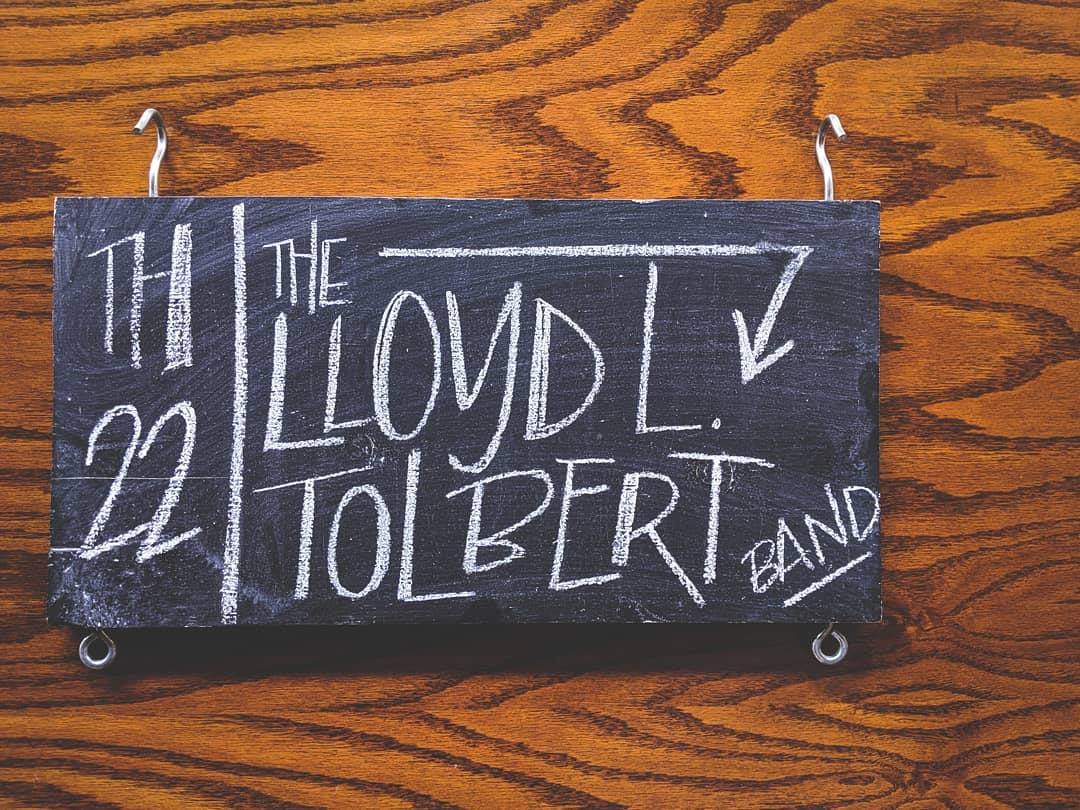 TH
22
THE
LLOYD L.
TOLBERT
BAND